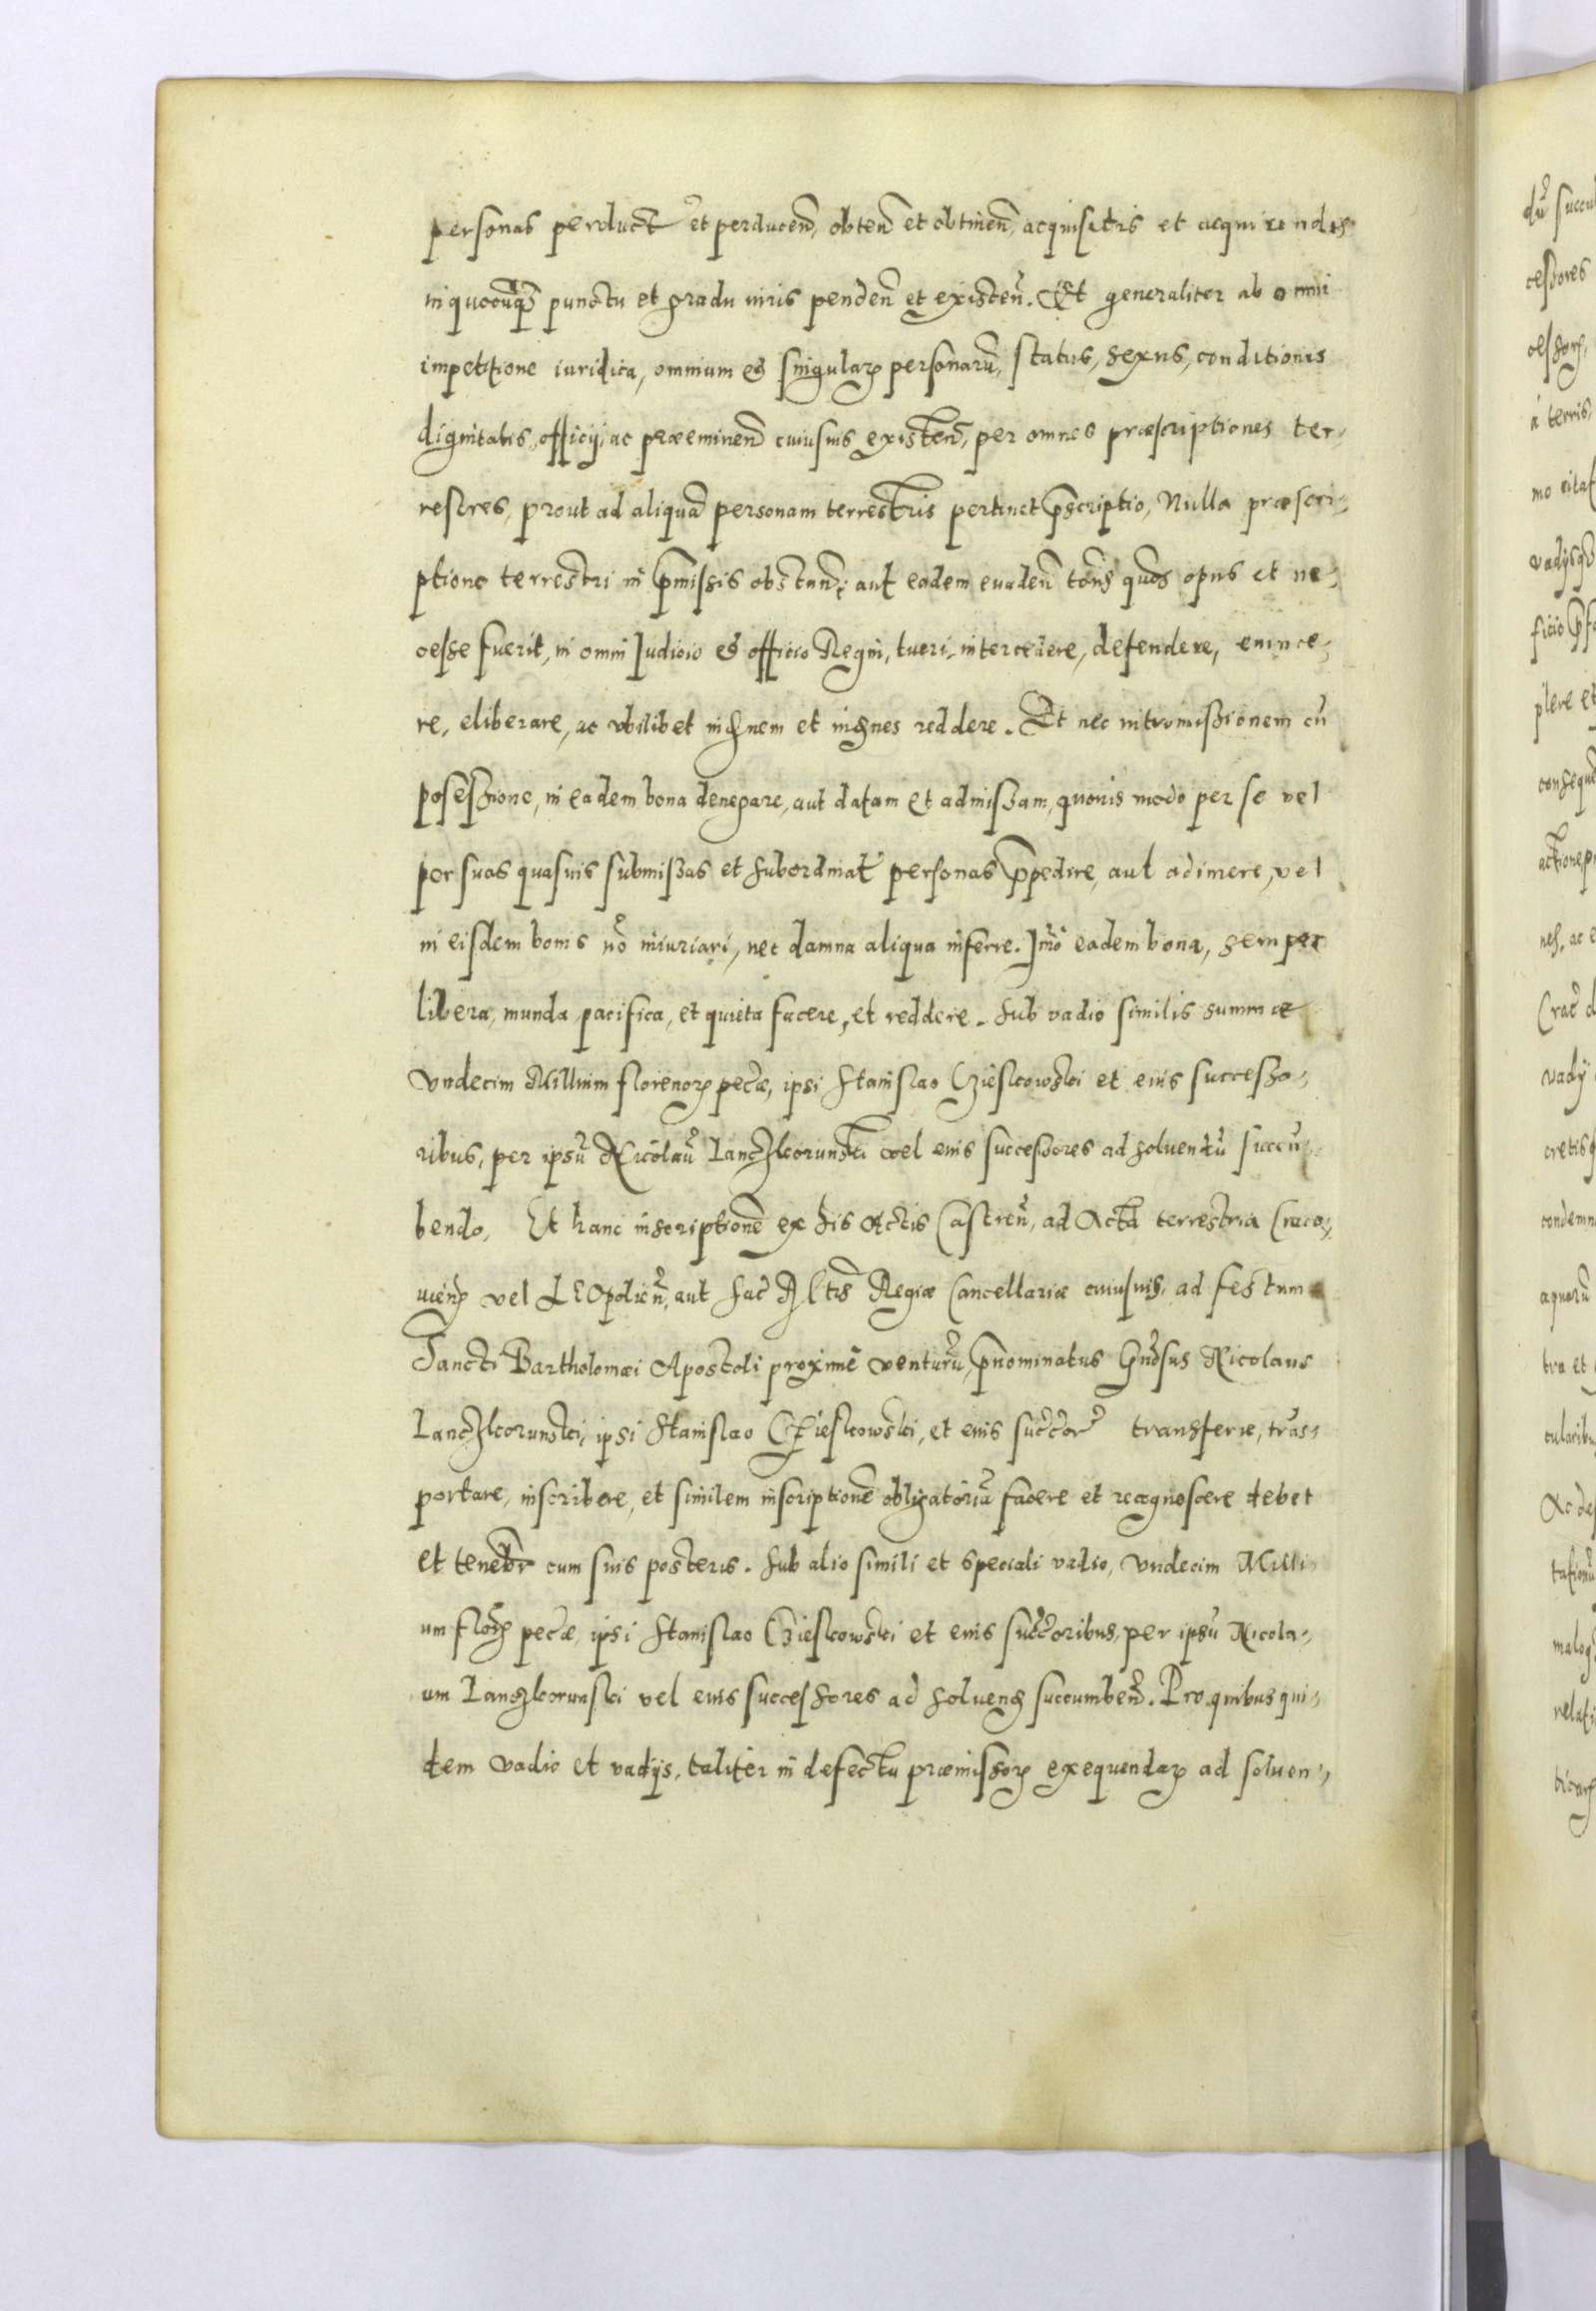 personas perduct et perducen, obten et obtinen, acquisitis et acquirendis
in quocunq punctu et gradu iuris penden et existen. Et generaliter ab omni
impetitione iuridica, omnium et singular personarū, status, sexus, conditionis
dignitatis, officij, ac præeminen cuiusuis existen, per omnes præscriptiones ter-
restres, prout ad aliquā personam terrestris pertinet pscriptio, Nulla præscri-
ptione terrestri in pmissis obstan: aut eadem euaden toties quoties opus et ne-
cesse fuerit, in omni Iudicio et officio Regni, tueri, intercedere, defendere, euince-
re, eliberare, ac vbilibet indemnem et indemnes reddere. Et nec intromissionem cū
possessione, in eadem bona denegare, aut datam et admissam, quouis modo per se vel
per suas quasuis submissas et subordinat personas ppedire, aut adimere, vel
in eisdem bonis nō iniuriari, nec damna aliqua inferre. Imō eadem bona, semper
libera, munda, pacifica, et quieta facere, et reddere. Sub vadio similis summæ
Vndecim Millium florenor pecæ, ipsi Stanislao Czieskowski et eius successo-
ribus, per ipsū Nicolaū Lanczkorunski vel eius successores ad soluendū succū-
bendo. Et hanc inscriptionē ex his Actis Castren, ad Acta terrestria Craco-
uien vel LEOpolien, aut Sac Mtis Regiæ Cancellariæ cuiusuis, ad festum
Sancti Bartholomæi Apostoli proximē venturū, pnominatus Gnosus Nicolaus
Lanczkorunski, ipsi Stanislao Czieskowski, et eius succor transferre, trās-
portare, inscribere, et similem inscriptionē obligatoriā facere et recognoscere debet
et tenebr cum suis posteris. Sub alio simili et speciali vadio, Vndecim Milli-
um flor pecæ, ipsi Stanislao Czieskowski et eius succoribus, per ipsū Nicola-
um Lanczkorunski vel eius successores ad soluend succumben. Pro quibus qui-
dem vadio et vadijs, taliter in defectu præmissor exequendar ad soluen-